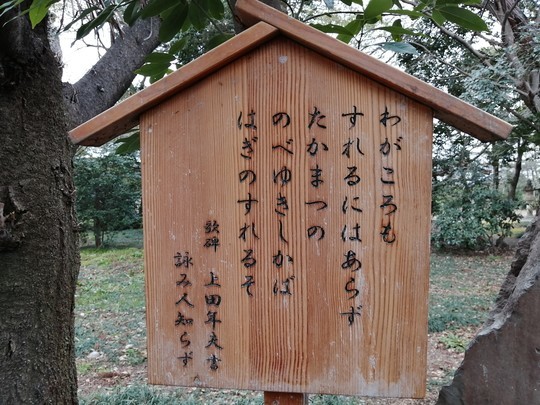 わがころも
すれるにはあらず
たかまつの
のべゆきしかば
はぎのすれるそ
歌碑 上田年夫書
詠み人知らず